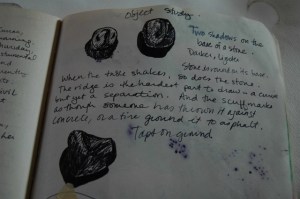 Object Study:
Two shadows on the
base of a stone.
Darker, lighter
Stone around its base.
When the table shakes, so does the stone.
The ridge is the hardest part to draw – a curve
but yet a separation. And the scuff marks
as though someone has thrown it against
concrete, or a tire ground it to asphalt.
Tapt on ground